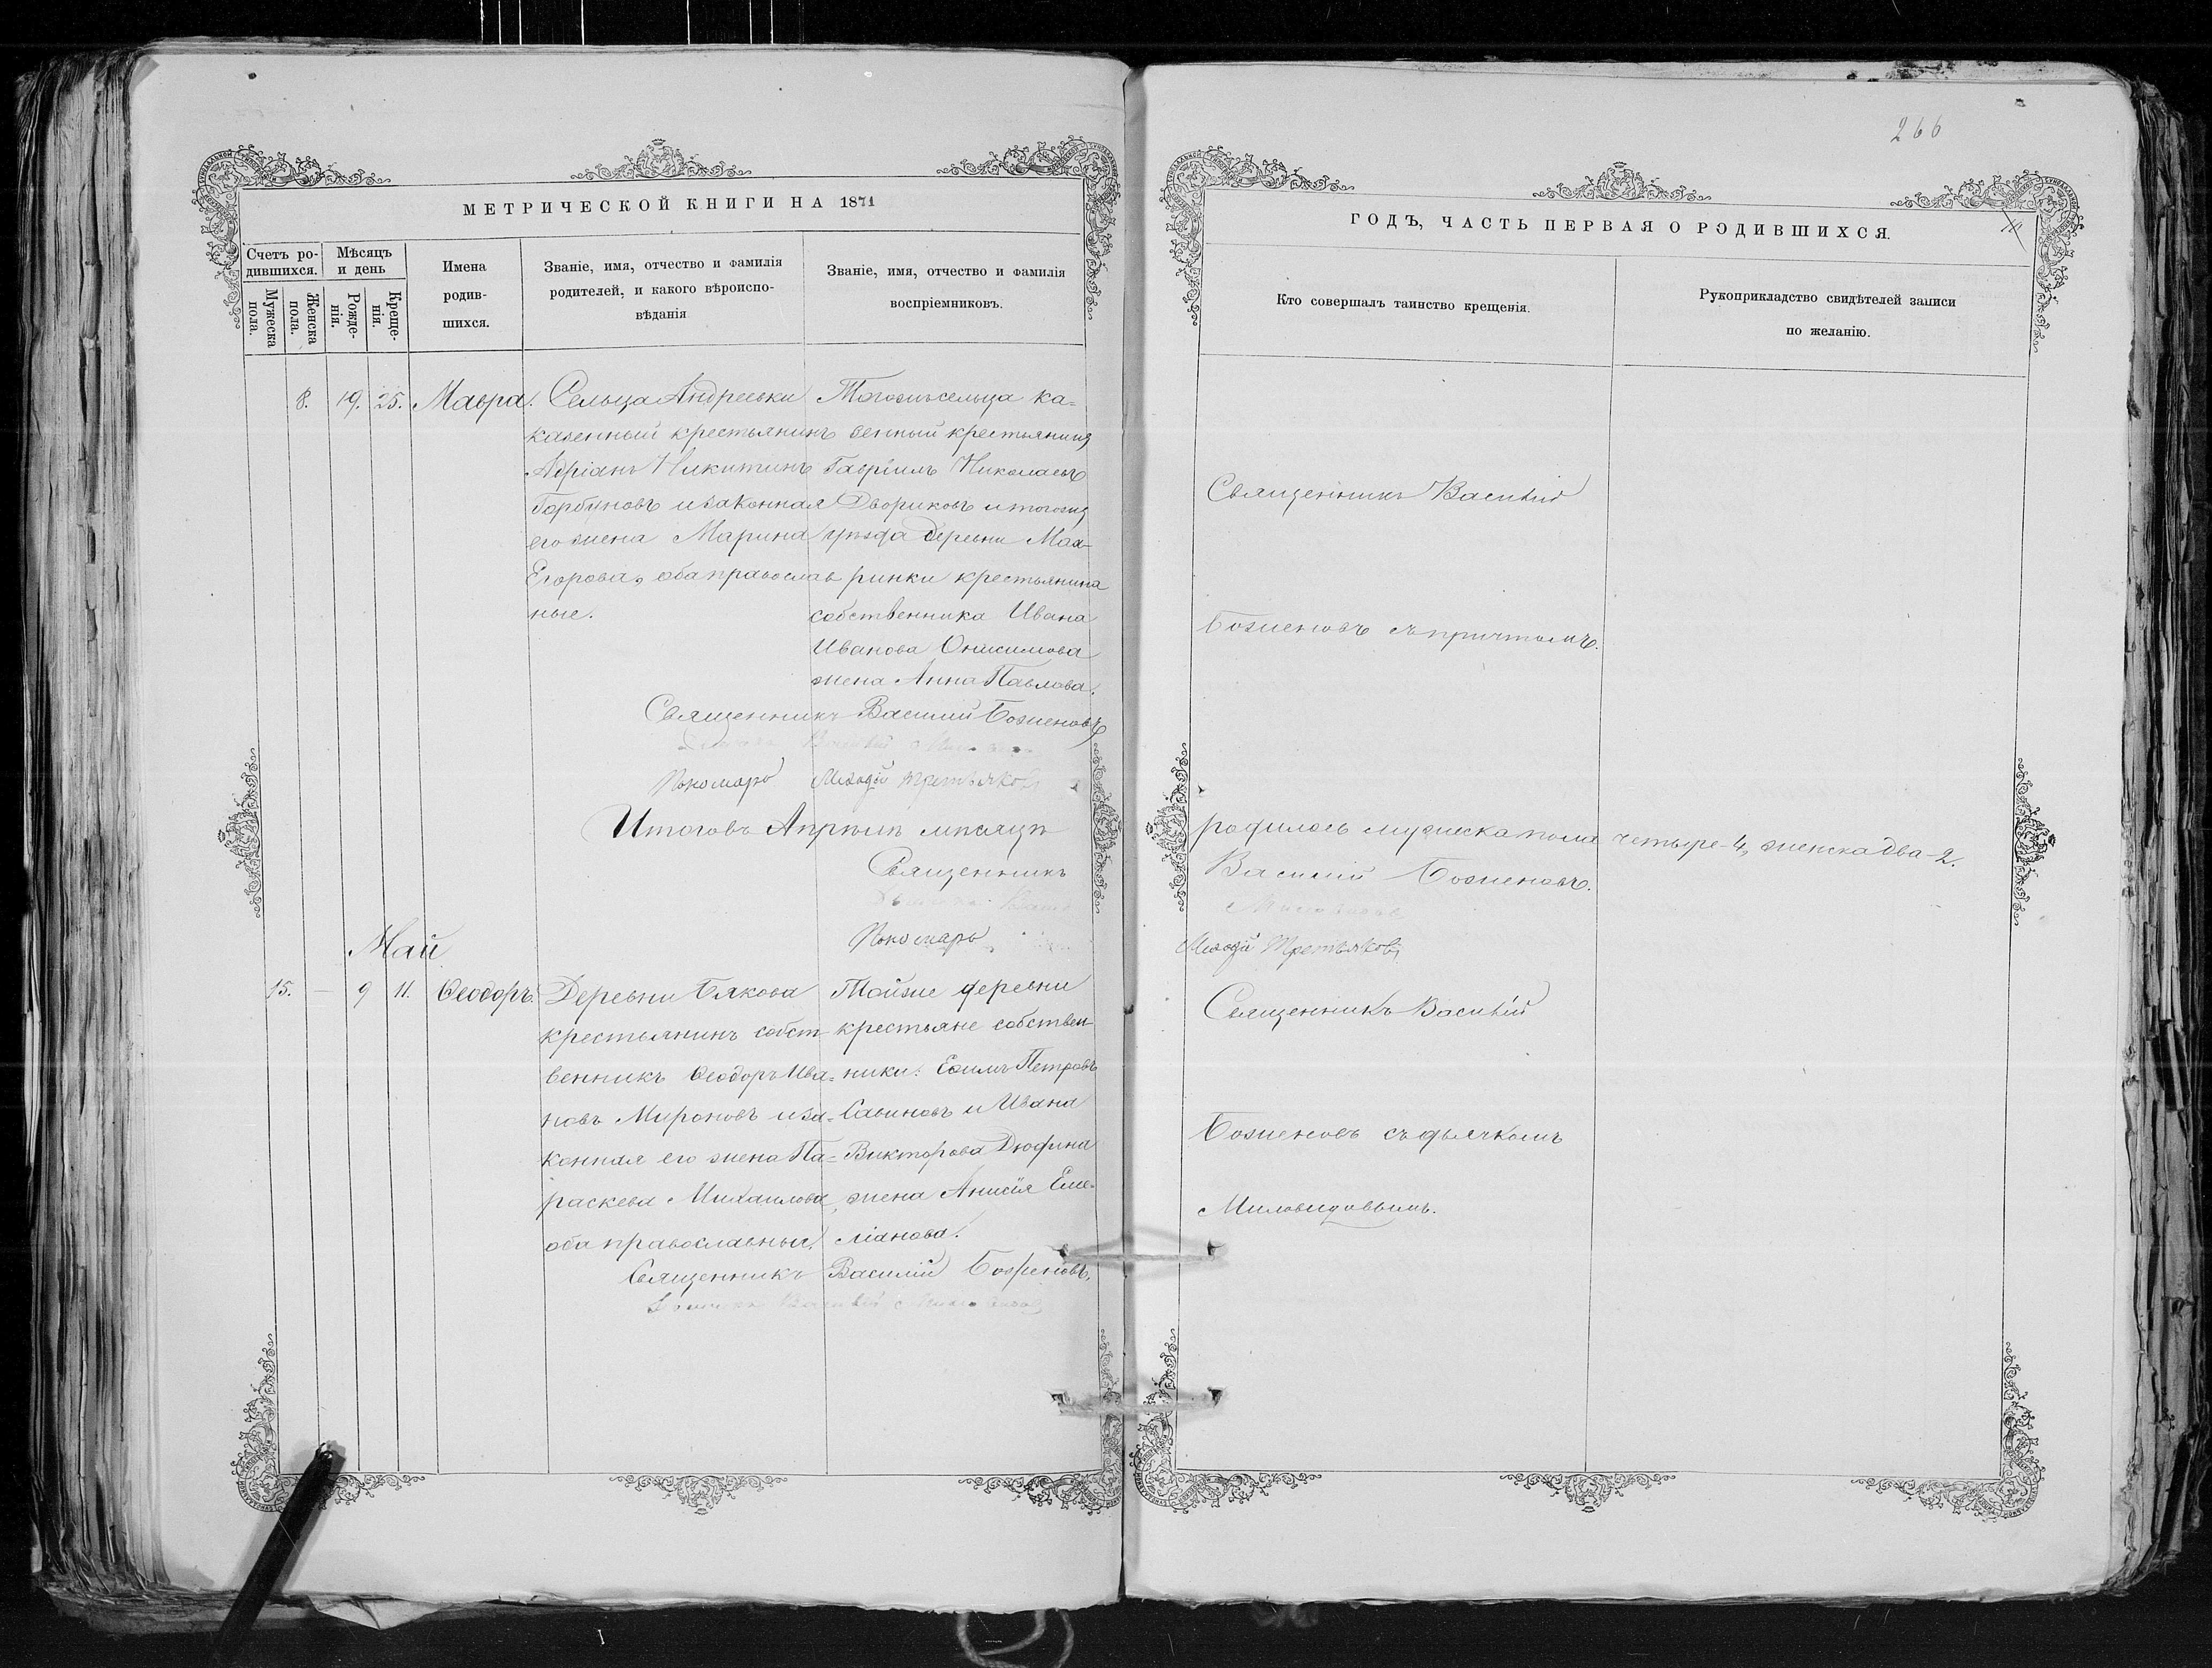 266
МЕТРИЧЕСКОЙ КНИГИ НА 1871
ГОДЪ, ЧАСТЬ ПЕРВАЯ О РОДИВШИХСЯ.
Счетъ ро-
дившихся.
Мужеска
пола.
Женска
пола.
Мѣсяцъ
и день
Рожде-
нія.
Креще-
нія.
Имена
родив-
шихся.
Званіе, имя, отчество и фамилія
родителей, и какого вѣроиспо-
вѣданія
Званіе, имя, отчество и фамилія
воспріемниковъ.
Кто совершалъ таинство крещенія.
Рукоприкладство свидѣтелей записи
по желанію.
8. 19. 25. Мавра.
Сельца Андреевки
казенный крестьянинъ
Адріанъ Никитинъ
Горбуновъ и законная
его жена Марина
Егорова, оба православ
ные.
Тогожъ сельца ка-
зенный крестьянинъ
Гавріилъ Николаевъ
Двориковъ и тогожъ
уѣзда деревни Маа-
ринки крестьянина
собственника Ивана
Иванова Онисимова
жена Анна Павлова.
Священникъ Василій
Боженовъ съ причтомъ.
Священникъ Василій Боженовъ
Дьячекъ Василій Миловидовъ
Пономарь Меѳодій Третьяковъ
Итого въ Апрѣлѣ мѣсяцѣ родилось мужеска пола четыре-4, женска два-2.
Священникъ Василій Боженовъ.
Дьячекъ Миловидовъ
Пономарь Меѳодій Третьяковъ
Май
15. — 9 11. Ѳеодоръ.
Деревни Бякова
крестьянинъ собст-
венникъ Ѳеодоръ Ива-
новъ Мироновъ и за-
конная его жена Па-
раскева Михаилова,
оба православные.
Тойже деревни
крестьяне собствен-
ники: Евѳимъ Петровъ
Савиновъ и Ивана
Викторова Дюфина
жена Анисія Еме-
ліанова.
Священникъ Василій
Боженовъ съ дьячкомъ
Миловидовымъ.
Священникъ Василій Боженовъ.
Дьячекъ Василій Миловидовъ